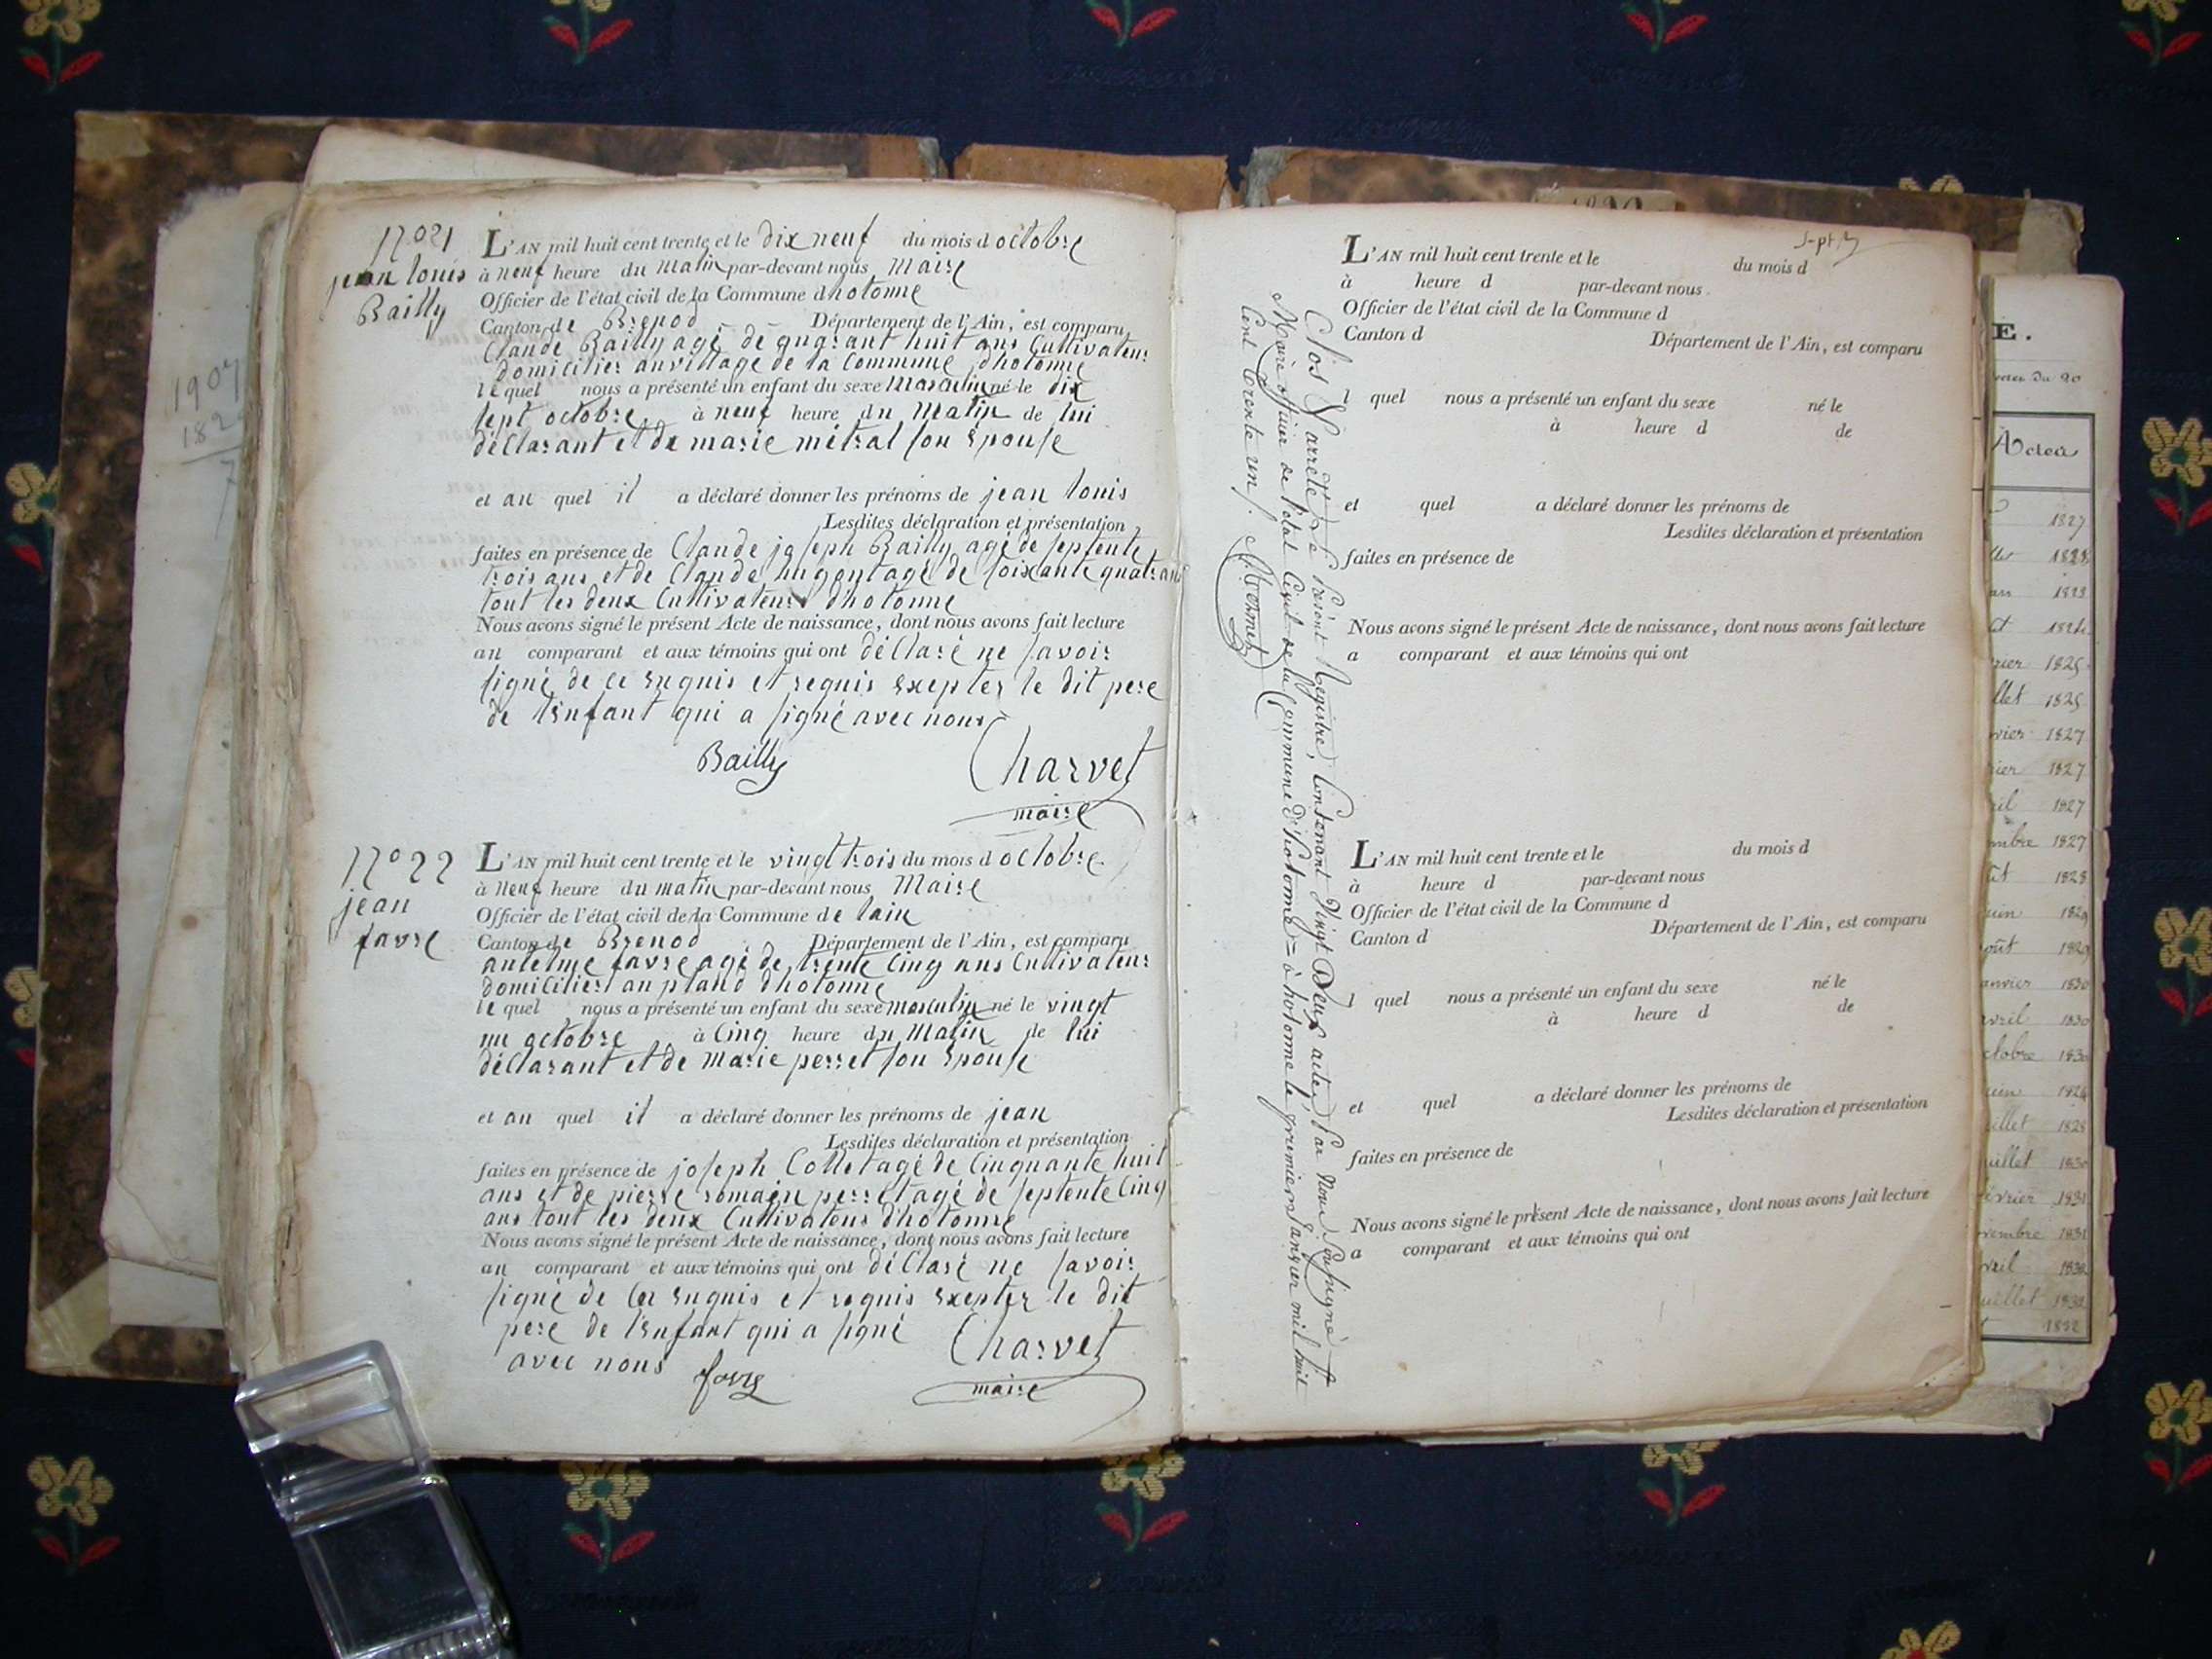 1907
182
7
N° 21
jean louis
Bailly
L'AN mil huit cent trente et le dix neuf du mois d octobre
à neuf heure du matin par-devant nous Maire
Officier de l'état civil de la Commune dhotonne
Canton de Brenod Département de l'Ain, est comparu
Claude Bailly agé de quarant huit ans Cultivateur
domicilier au village de la Commune dhotonne
le quel nous a présenté un enfant du sexe Masculin né le dix
sept octobre à neuf heure du Matin de lui
déclarant et de marie métral son épouse
et au quel il a déclaré donner les prénoms de jean louis
Lesdites déclaration et présentation
faites en présence de Claude joseph Bailly agé de septente
trois ans et de Claude hugontagé de soixante quatrans
tout les deux Cultivateurs dhotonne
Nous avons signé le présent Acte de naissance, dont nous avons fait lecture
au comparant et aux témoins qui ont déclaré ne savoir
signé de ce enquis et requis exepter le dit pere
de l'enfant qui a signé avec nous
Bailly Charvet
maire
N° 22
jean
favre
L'AN mil huit cent trente et le vingt trois du mois d octobre
à neuf heure du matin par-devant nous Maire
Officier de l'état civil de la Commune de lain
Canton de Brenod Département de l'Ain, est comparu
antelme favre agé de trente cinq ans Cultivateur
domicilier au pland dhotonne
le quel nous a présenté un enfant du sexe masculin né le vingt
un octobre à Cinq heure du Matin de lui
déclarant et de Marie perret son épouse
et au quel il a déclaré donner les prénoms de jean
Lesdites déclaration et présentation
faites en présence de joseph Colletagé de Cinquante huit
ans et de pierre romain perretagé de septente Cinq
ans tout les deux Cultivateus dhotonne
Nous avons signé le présent Acte de naissance, dont nous avons fait lecture
au comparant et aux témoins qui ont déclaré ne savoir
signé de ce enquis et requis exepter le dit
pere de l'enfant qui a signé
avec nous favre Charvet
maire
Clos & arrêté le Présent Registre, Contenant Vingt Deux actes, Par Nous Soussigné
Maire officier de l'état Civil de la Commune d'hotonne = à hotonne le premier Janvier mil huit
Cent trente un /.
L'AN mil huit cent trente et le du mois d
à heure d par-devant nous
Officier de l'état civil de la Commune d
Canton d Département de l'Ain, est comparu
l quel nous a présenté un enfant du sexe né le
à heure d de
et quel a déclaré donner les prénoms de
Lesdites déclaration et présentation
faites en présence de
Nous avons signé le présent Acte de naissance, dont nous avons fait lecture
a comparant et aux témoins qui ont
L'AN mil huit cent trente et le du mois d
à heure d par-devant nous
Officier de l'état civil de la Commune d
Canton d Département de l'Ain, est comparu
l quel nous a présenté un enfant du sexe né le
à heure d de
et quel a déclaré donner les prénoms de
Lesdites déclaration et présentation
faites en présence de
Nous avons signé le présent Acte de naissance, dont nous avons fait lecture
a comparant et aux témoins qui ont
E.
du 20
Actes
1827
1828
1825
llet 1825
vrier 1827
rier 1827
ril 1827
mbre 1827
ût 1828
uin 1829
oût 1829
anvier 1830
avril 1830
ctobre 1830
uin
uillet 1828
uillet 1830
évrier 1831
vembre 1831
vril 1832
uillet 1832
1832